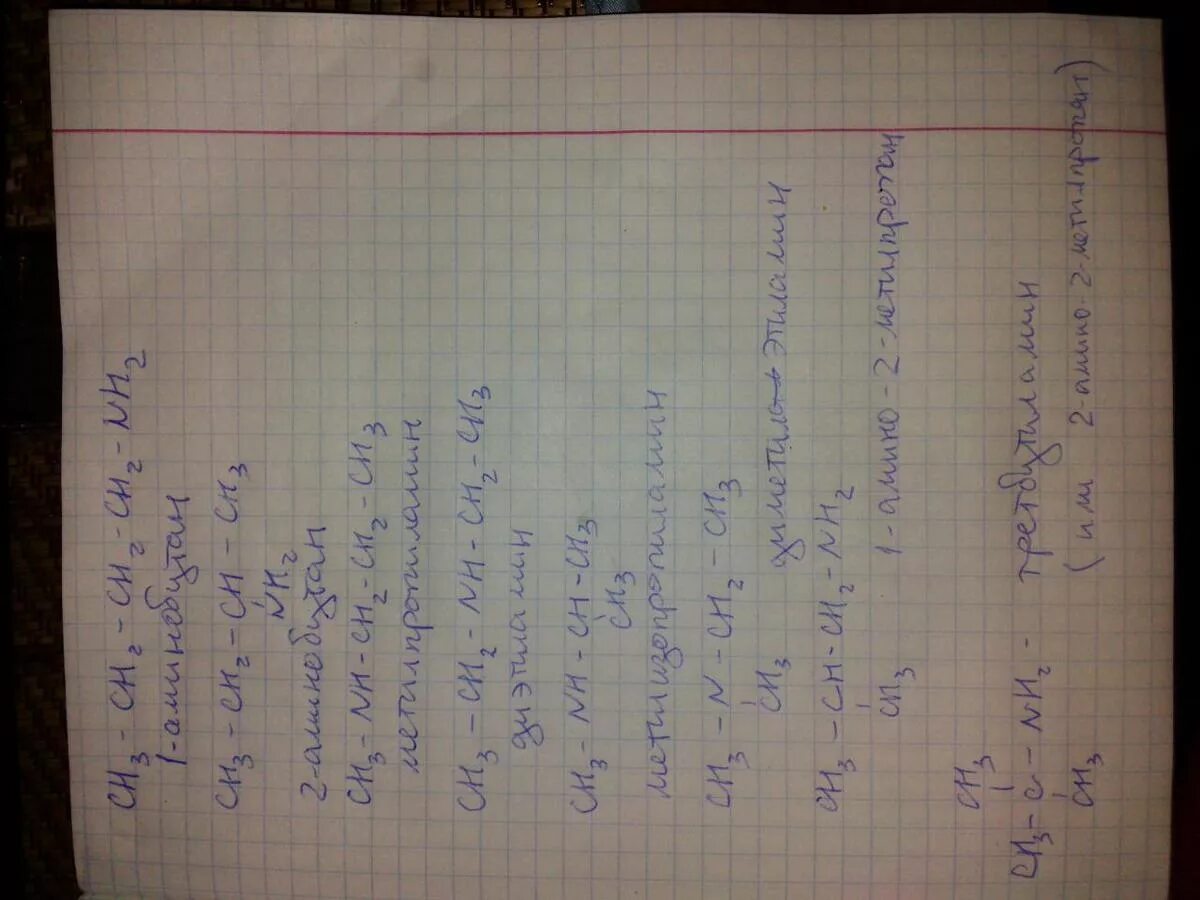 CH₃ - CH₂ - CH₂ - CH₂ - NH₂
1-аминобутан
CH₃ - CH₂ - CH - CH₃
NH₂
2-аминобутан
CH₃ - NH - CH₂ - CH₂ - CH₃
метилпропиламин
CH₃ - CH₂ - NH - CH₂ - CH₃
диэтиламин
CH₃ - NH - CH - CH₃
CH₃
метилизопропиламин
CH₃ - N - CH₂ - CH₃
CH₃ диметилэтиламин
CH₃ - CH - CH₂ - NH₂
CH₃ 1-амино-2-метилпропан
CH₃
CH₃ - C - NH₂ - третбутиламин
CH₃ (или 2-амино-2-метилпропан)